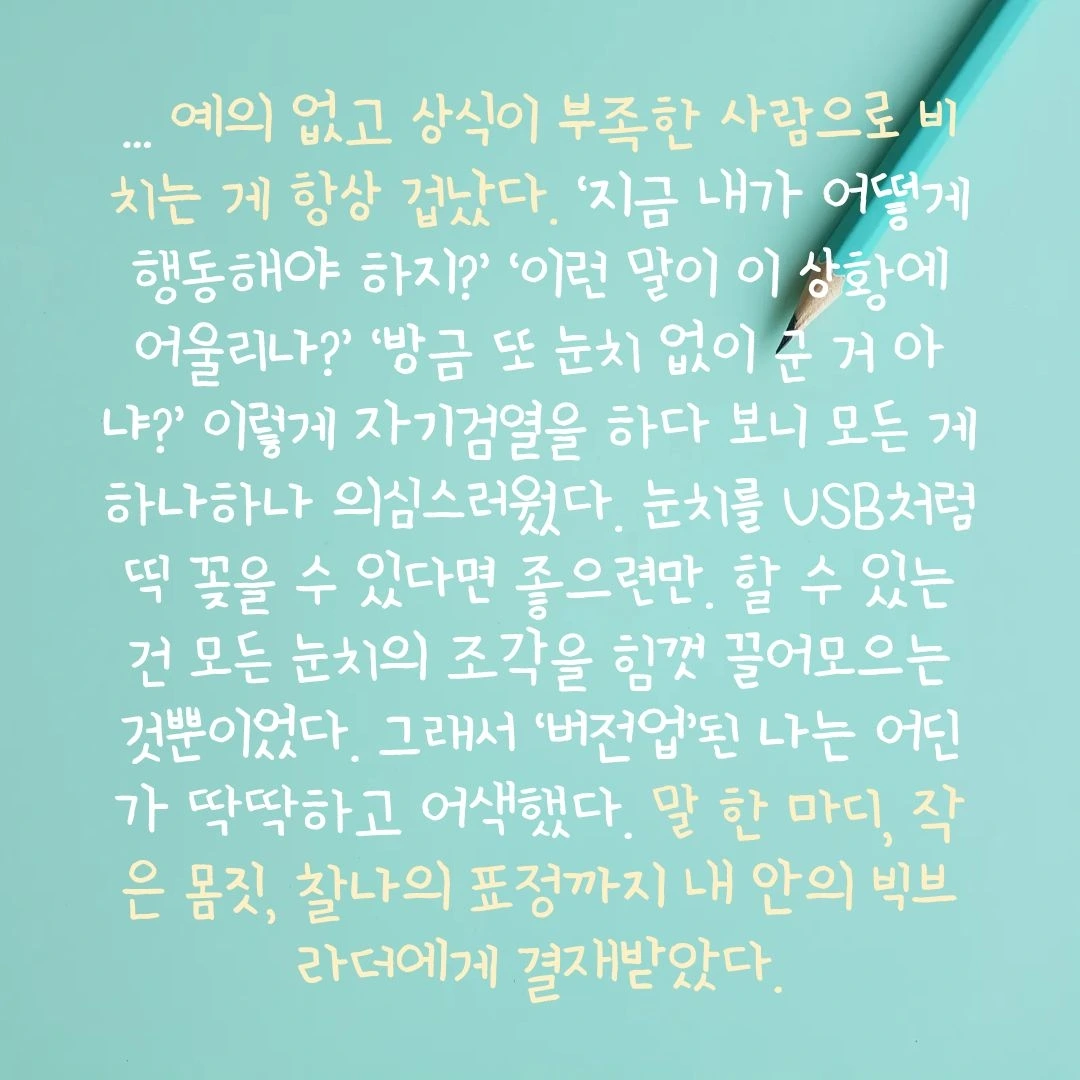 ... 예의 없고 상식이 부족한 사람으로 비
치는 게 항상 겁났다. ‘지금 내가 어떻게
행동해야 하지?’ ‘이런 말이 이 상황에
어울리나?’ ‘방금 또 눈치 없이 군 거 아
냐?’ 이렇게 자기검열을 하다 보니 모든 게
하나하나 의심스러웠다. 눈치를 USB처럼
띡 꽂을 수 있다면 좋으련만. 할 수 있는
건 모든 눈치의 조각을 힘껏 끌어모으는
것뿐이었다. 그래서 ‘버전업’된 나는 어딘
가 딱딱하고 어색했다. 말 한 마디, 작
은 몸짓, 찰나의 표정까지 내 안의 빅브
라더에게 결재받았다.